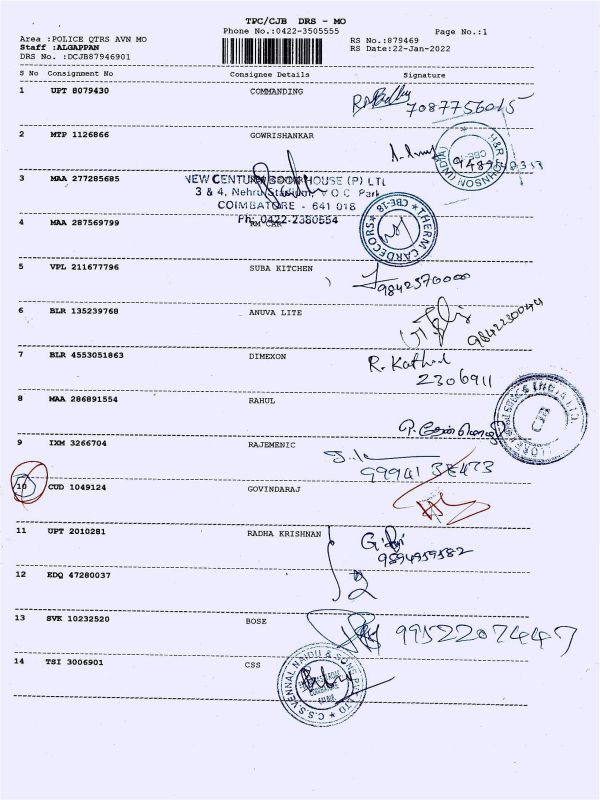 TPC/CJB DRS - MO
Phone No.:0422-3505555
Page No.:1
Area :POLICE QTRS AVN MO
RS No.:879469
Staff :ALGAPPAN
RS Date:22-Jan-2022
DRS No. :DCJB87946901
S No Consignment No Consignee Details Signature
1 UPT 8079430 COMMANDING
7087756015
2 MTP 1126866 GOWRISHANKAR
H&R JOHNSON (INDIA)
3 MAA 277285685
NEW CENTURY BOOK HOUSE (P) LTD
3 & 4, Nehru Stadium, V O C Park
COIMBATORE - 641 018
Ph: 0422-2380554
4 MAA 287569799
THERM CARDECORS ★ CBE-18 ★
5 VPL 211677796 SUBA KITCHEN
9842570000
6 BLR 135239768 ANUVA LITE
7 BLR 4553051863 DIMEXON
R. Kathel
2306911
8 MAA 286891554 RAHUL
9 IXM 3266704 RAJEMENIC
10 CUD 1049124 GOVINDARAJ
11 UPT 2010281 RADHA KRISHNAN
9894959582
12 EDQ 47280037
13 SVK 10232520 BOSE
9952207447
14 TSI 3006901 CSS
C.S.S. VENNAL NAIDU & SONS PVT LTD